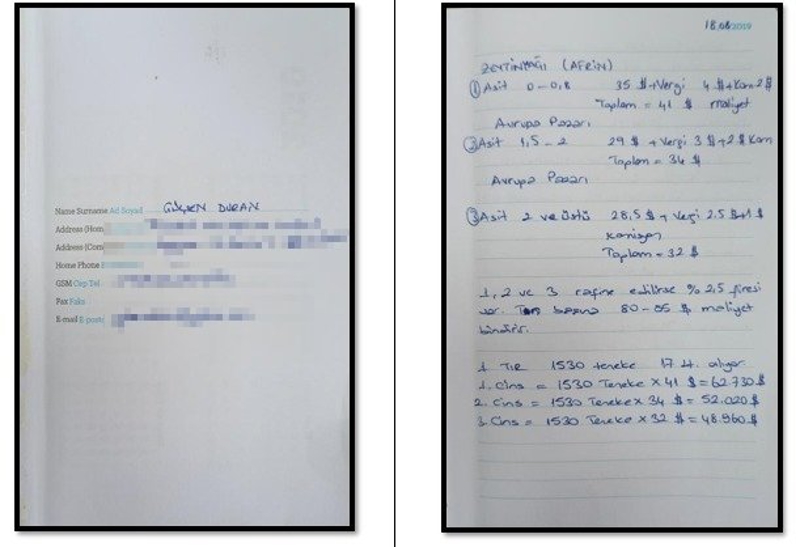 Name Surname Ad Soyad GÜLŞEN DURAN
Address (Hom
Address (Com
Home Phone
GSM Cep Tel
Fax Faks
E-mail E-posta
18.08 2019
ZEYTİNYAĞI (AFRİN)
① Asit 0-0,8 35 $ + Vergi 4 $ + Kom 2 $
Toplam = 41 $ maliyet
Avrupa Pazarı
② Asit 1,5 - 2 29 $ + Vergi 3 $ + 2 $ Kom
Toplam = 34 $
Avrupa Pazarı
③ Asit 2 ve üstü 28,5 $ + Vergi 2.5 $ + 1 $
Komisyon
Toplam = 32 $
1, 2 ve 3 rafine edilirse % 2,5 firesi
var. Ton başına 80-85 $ maliyet
bindirir.
1 Tır 1530 teneke 17 t. alıyor.
1. Cins = 1530 Teneke x 41 $ = 62.730 $
2. Cins = 1530 Teneke x 34 $ = 52.020 $
3. Cins = 1530 Teneke x 32 $ = 48.960 $